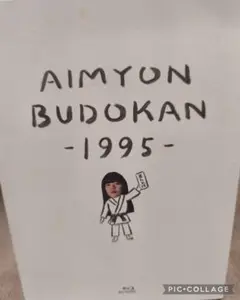 AIMYON
BUDOKAN
-1995-
PIC•COLLAGE